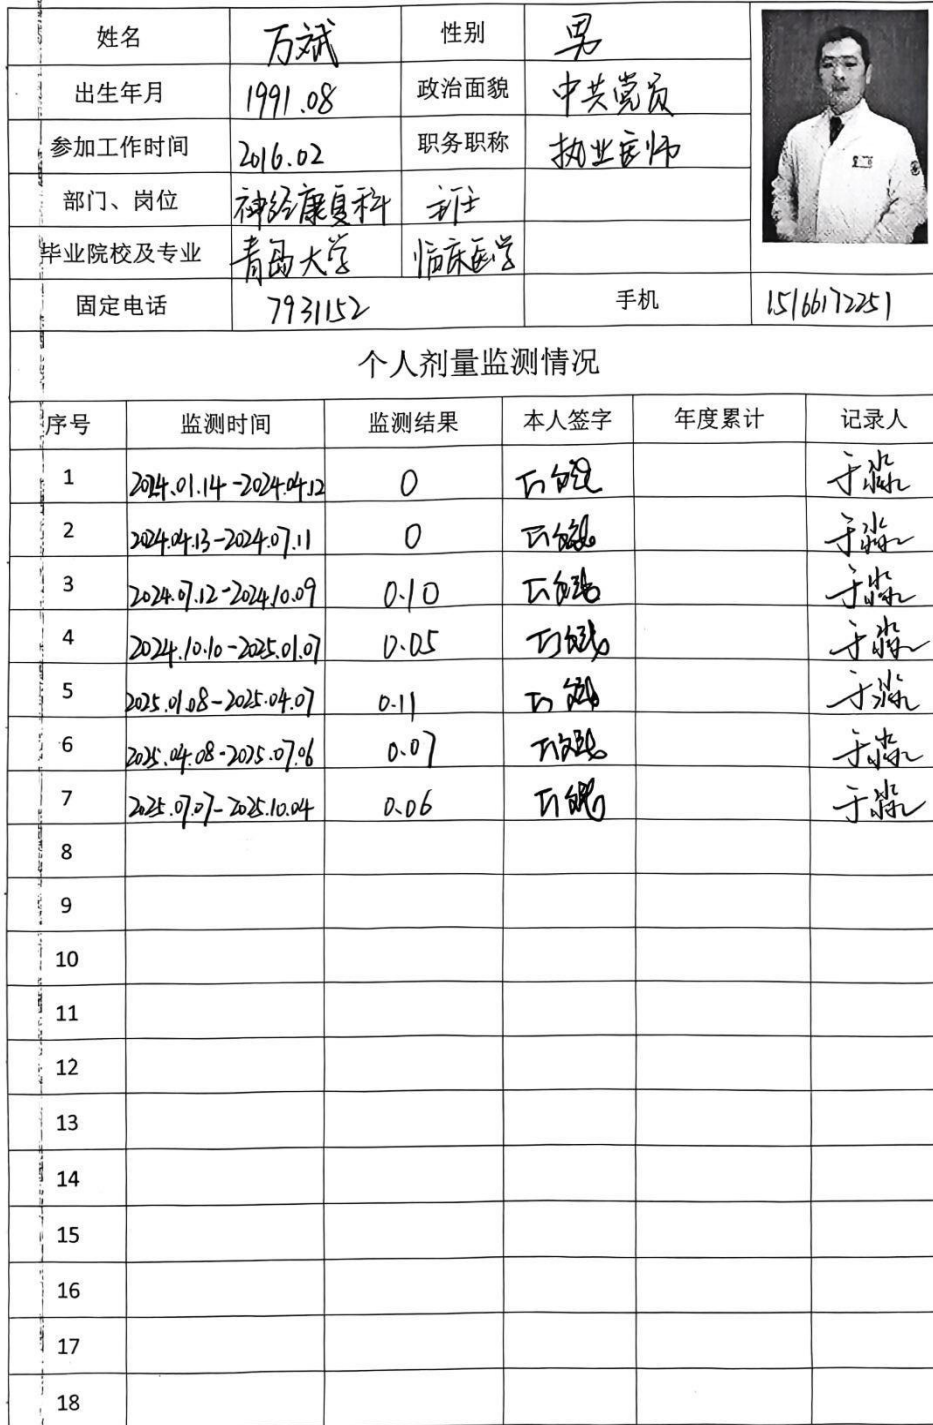 姓名 万斌 性别 男
出生年月 1991.08 政治面貌 中共党员
参加工作时间 2016.02 职务职称 执业医师
部门、岗位 神经康复科
毕业院校及专业 青岛大学 临床医学
固定电话 7931152 手机 15166172251
个人剂量监测情况
序号 监测时间 监测结果 本人签字 年度累计 记录人
1 2024.01.14-2024.04.12 0
2 2024.04.13-2024.07.11 0
3 2024.07.12-2024.10.09 0.10
4 2024.10.10-2025.01.07 0.05
5 2025.01.08-2025.04.07 0.11
6 2025.04.08-2025.07.06 0.07
7 2025.07.07-2025.10.04 0.06
8
9
10
11
12
13
14
15
16
17
18